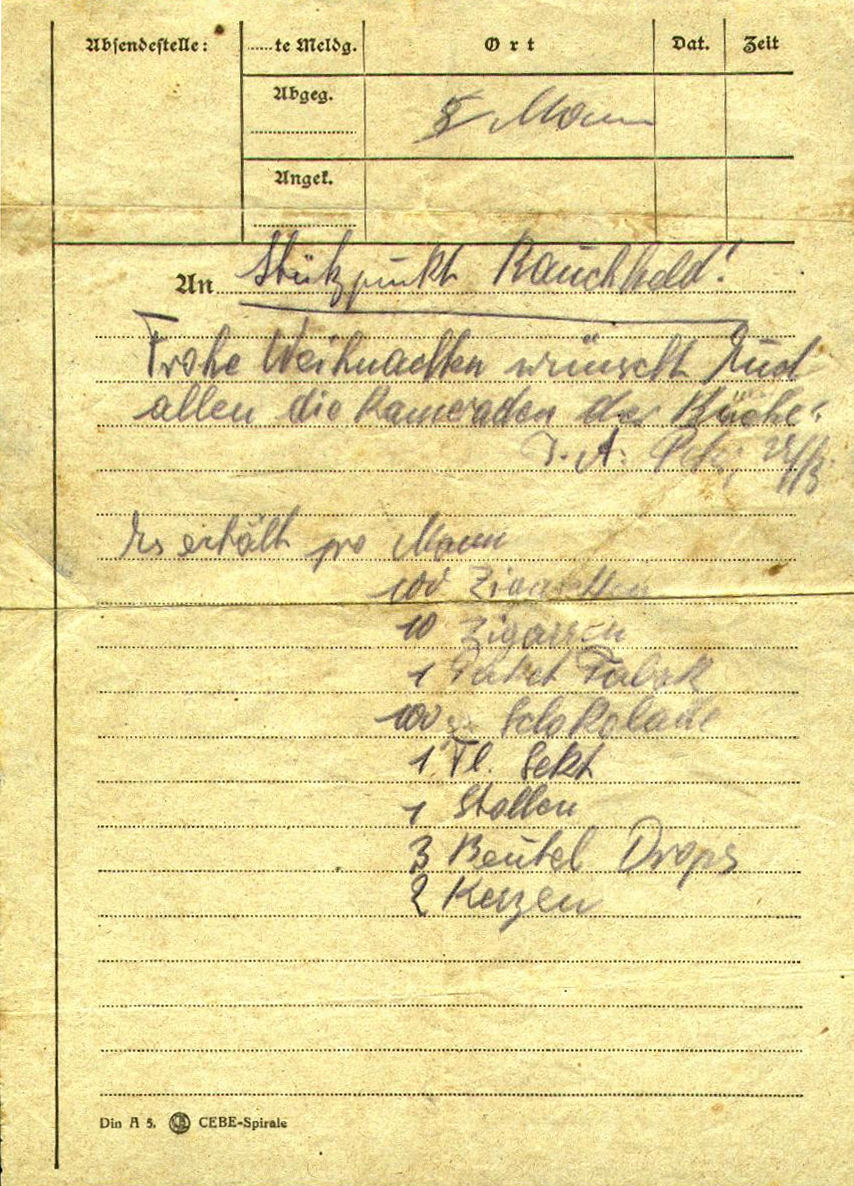 Absendestelle: ......te Meldg. Ort Dat. Zeit
Abgeg. 8 Mann
Angek.
An Stützpunkt Rauchhold!
Frohe Weihnachten wünscht Euch
allen die Kameraden der Küche.
I. A.
Es erhält pro Mann
100 Zigaretten
10 Zigarren
1 Paket Tabak
100 gr Schokolade
1 Fl. Sekt
1 Stollen
3 Beutel Drops
2 Kerzen
Din A 5. CEBE-Spirale